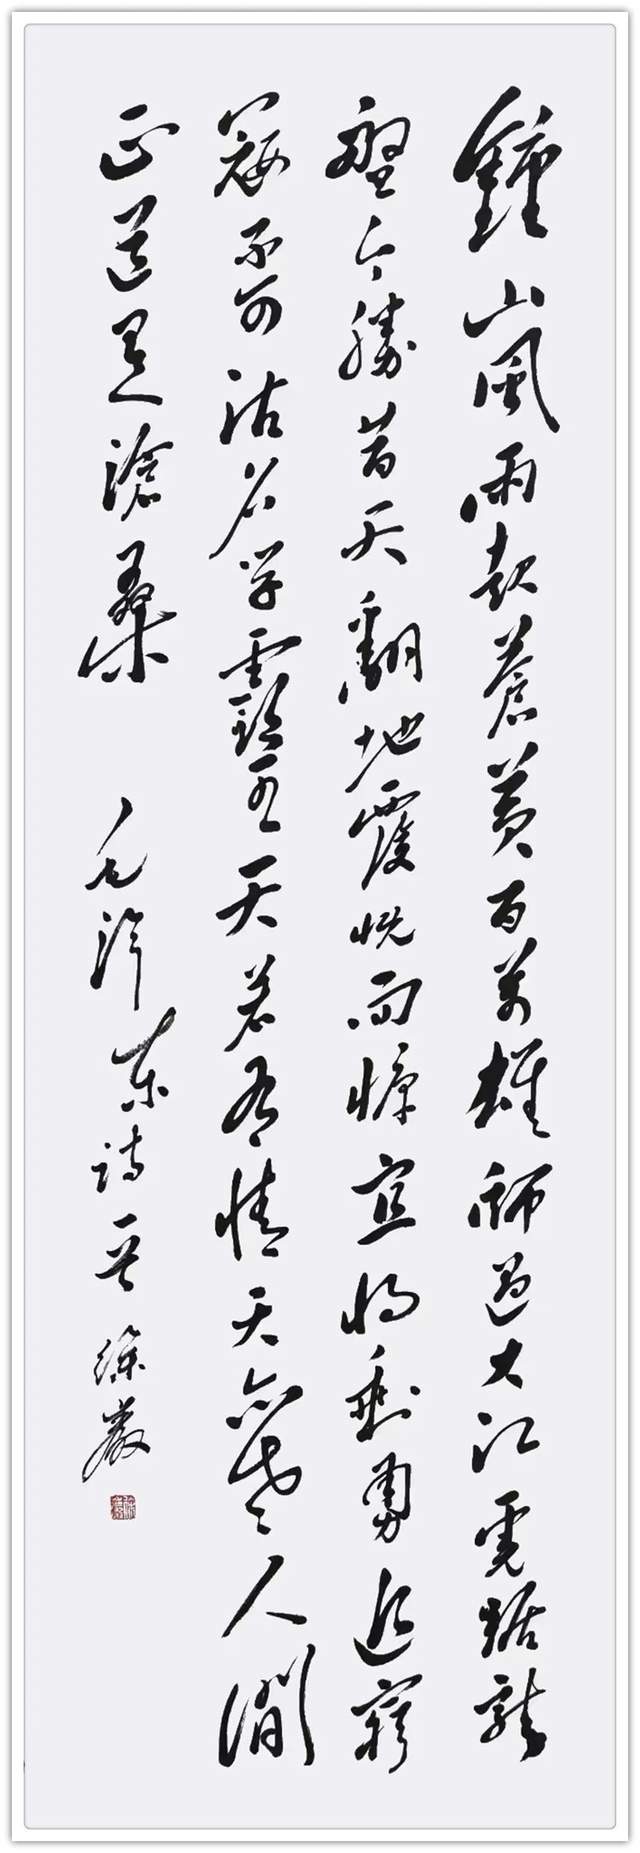 鍾山風雨起蒼黃百萬雄師過大江虎踞龍
盤今勝昔天翻地覆慨而慷宜將剩勇追窮
寇不可沽名學霸王天若有情天亦老人間
正道是滄桑 毛澤東詩一首 徐